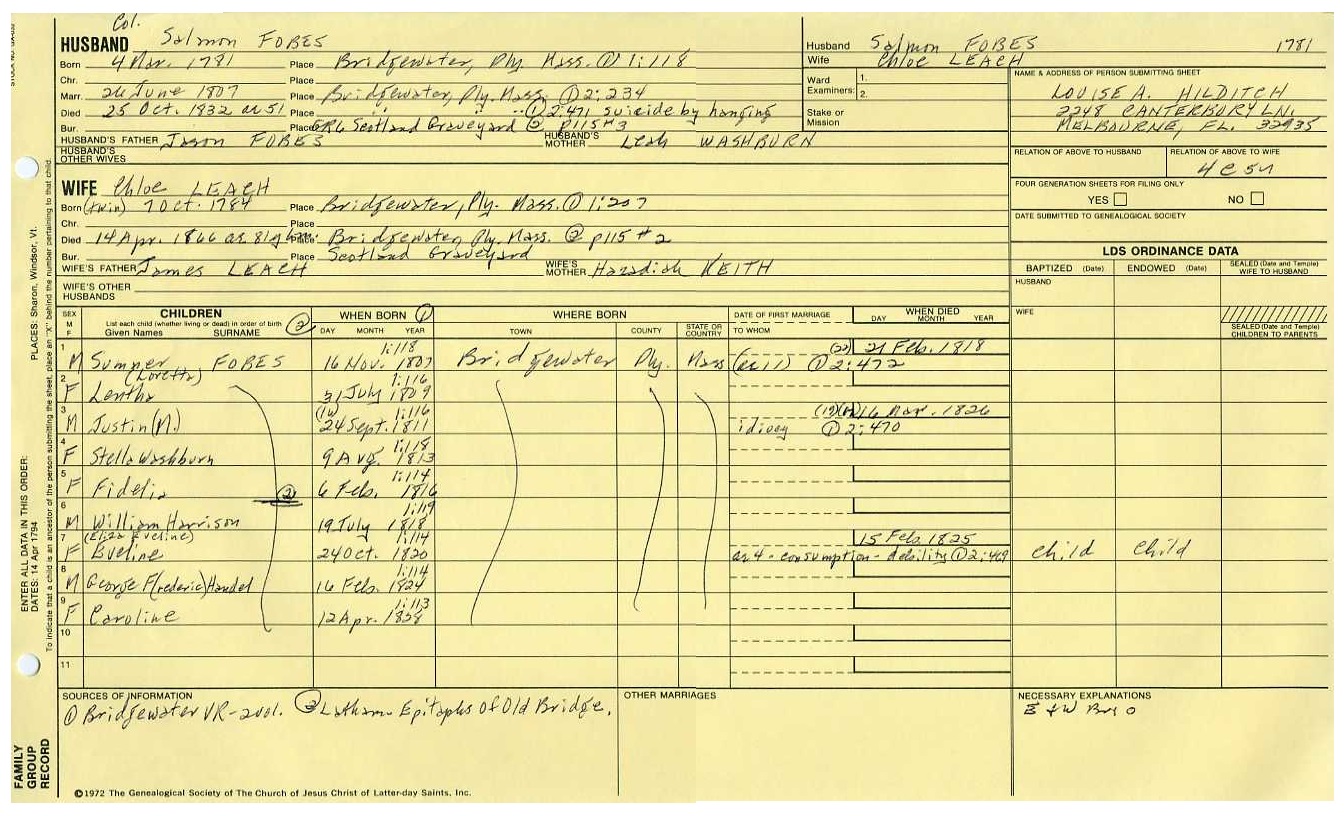 Col.
HUSBAND Salmon FOBES
Born 4 Mar. 1781 Place Bridgewater, Ply. Mass. ① 1:118
Chr. Place
Marr. 26 June 1807 Place Bridgewater, Ply. Mass. ① 2:234
Died 25 Oct. 1832 ae 51 Place " " " ① 2:471 suicide by hanging
Bur. Place GR6 Scotland Graveyard ② P115 #3
HUSBAND'S FATHER Jason FOBES HUSBAND'S MOTHER Leah WASHBURN
HUSBAND'S OTHER WIVES
WIFE Chloe LEACH
Born (twin) 7 Oct. 1784 Place Bridgewater, Ply. Mass. ① 1:207
Chr. Place
Died 14 Apr. 1866 ae 81y 6m. Place Bridgewater, Ply. Mass. ② p115 #2
Bur. Place Scotland Graveyard
WIFE'S FATHER James LEACH WIFE'S MOTHER Hazadiah KEITH
WIFE'S OTHER HUSBANDS
Husband Salmon FOBES 1781
Wife Chloe LEACH
Ward Examiners: 1.
2.
Stake or Mission
NAME & ADDRESS OF PERSON SUBMITTING SHEET
LOUISE A. HILDITCH
2248 CANTERBURY LN.
MELBOURNE, FL. 32935
RELATION OF ABOVE TO HUSBAND RELATION OF ABOVE TO WIFE
4C5R
FOUR GENERATION SHEETS FOR FILING ONLY
YES NO
DATE SUBMITTED TO GENEALOGICAL SOCIETY
LDS ORDINANCE DATA
BAPTIZED (Date) ENDOWED (Date) SEALED (Date and Temple) WIFE TO HUSBAND
HUSBAND
WIFE
SEALED (Date and Temple) CHILDREN TO PARENTS
SEX M F CHILDREN List each child (whether living or dead) in order of birth Given Names SURNAME ② WHEN BORN ① DAY MONTH YEAR WHERE BORN TOWN COUNTY STATE OR COUNTRY DATE OF FIRST MARRIAGE TO WHOM WHEN DIED DAY MONTH YEAR
1 M Sumner FOBES 16 Nov. 1807 1:118 Bridgewater Ply. Mass (ae 11) ① 2:472 (22) 21 Feb. 1818
2 F (Loretta) Lentha 31 July 1809 1:116
3 M Justin (M.) (16) 24 Sept. 1811 1:116 idiocy ① 2:470 16 Mar. 1826
4 F Stella Washburn 9 Aug. 1813 1:118
5 F Fidelia ② 6 Feb. 1816 1:114
6 M William Harrison 19 July 1818 1:119
7 F (Eliza Eveline) Eveline 24 Oct. 1820 1:114 ae 4 - consumption - debility ① 2:469 15 Feb. 1825 child child
8 M George F(rederic) Handel 16 Feb. 1824 1:114
9 F Caroline 12 Apr. 1:113
10
11
SOURCES OF INFORMATION
① Bridgewater VR-2vol. ② Latham-Epitaphs of Old Bridge.
OTHER MARRIAGES
NECESSARY EXPLANATIONS
E & W
©1972 The Genealogical Society of The Church of Jesus Christ of Latter-day Saints, Inc.
FAMILY GROUP RECORD
ENTER ALL DATA IN THIS ORDER:
DATES: 14 Apr 1794
PLACES: Sharon, Windsor, Vt.
To indicate that a child is an ancestor of the person submitting the sheet, place an "X" behind the number pertaining to that child.